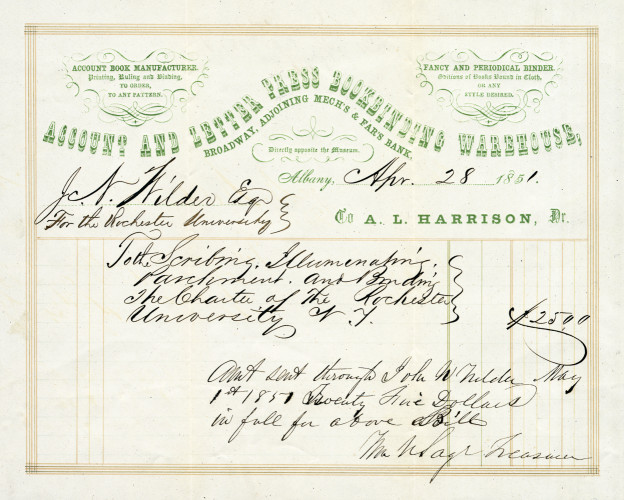 ACCOUNT BOOK MANUFACTURER.
Printing, Ruling and Binding,
TO ORDER,
TO ANY PATTERN.
FANCY AND PERIODICAL BINDER.
Editions of Books Bound in Cloth,
OR ANY
STYLE DESIRED.
ACCOUNT AND LETTER PRESS BOOKBINDING WAREHOUSE,
BROADWAY, ADJOINING MECH'S & FAR'S BANK,
Directly opposite the Museum.
Albany, Apr. 28 1851.
J. N. Wilder Esq
For the Rochester University
To A. L. HARRISON, Dr.
To the Scribing, Illumenating,
Parchment. and Binding
The Charter of The Rochester
University N. Y. $25,00
Amt sent through John N Wilder May
1st 1851 Twenty Five Dollars
in full for above Bill
Wm N Sage Treasurer